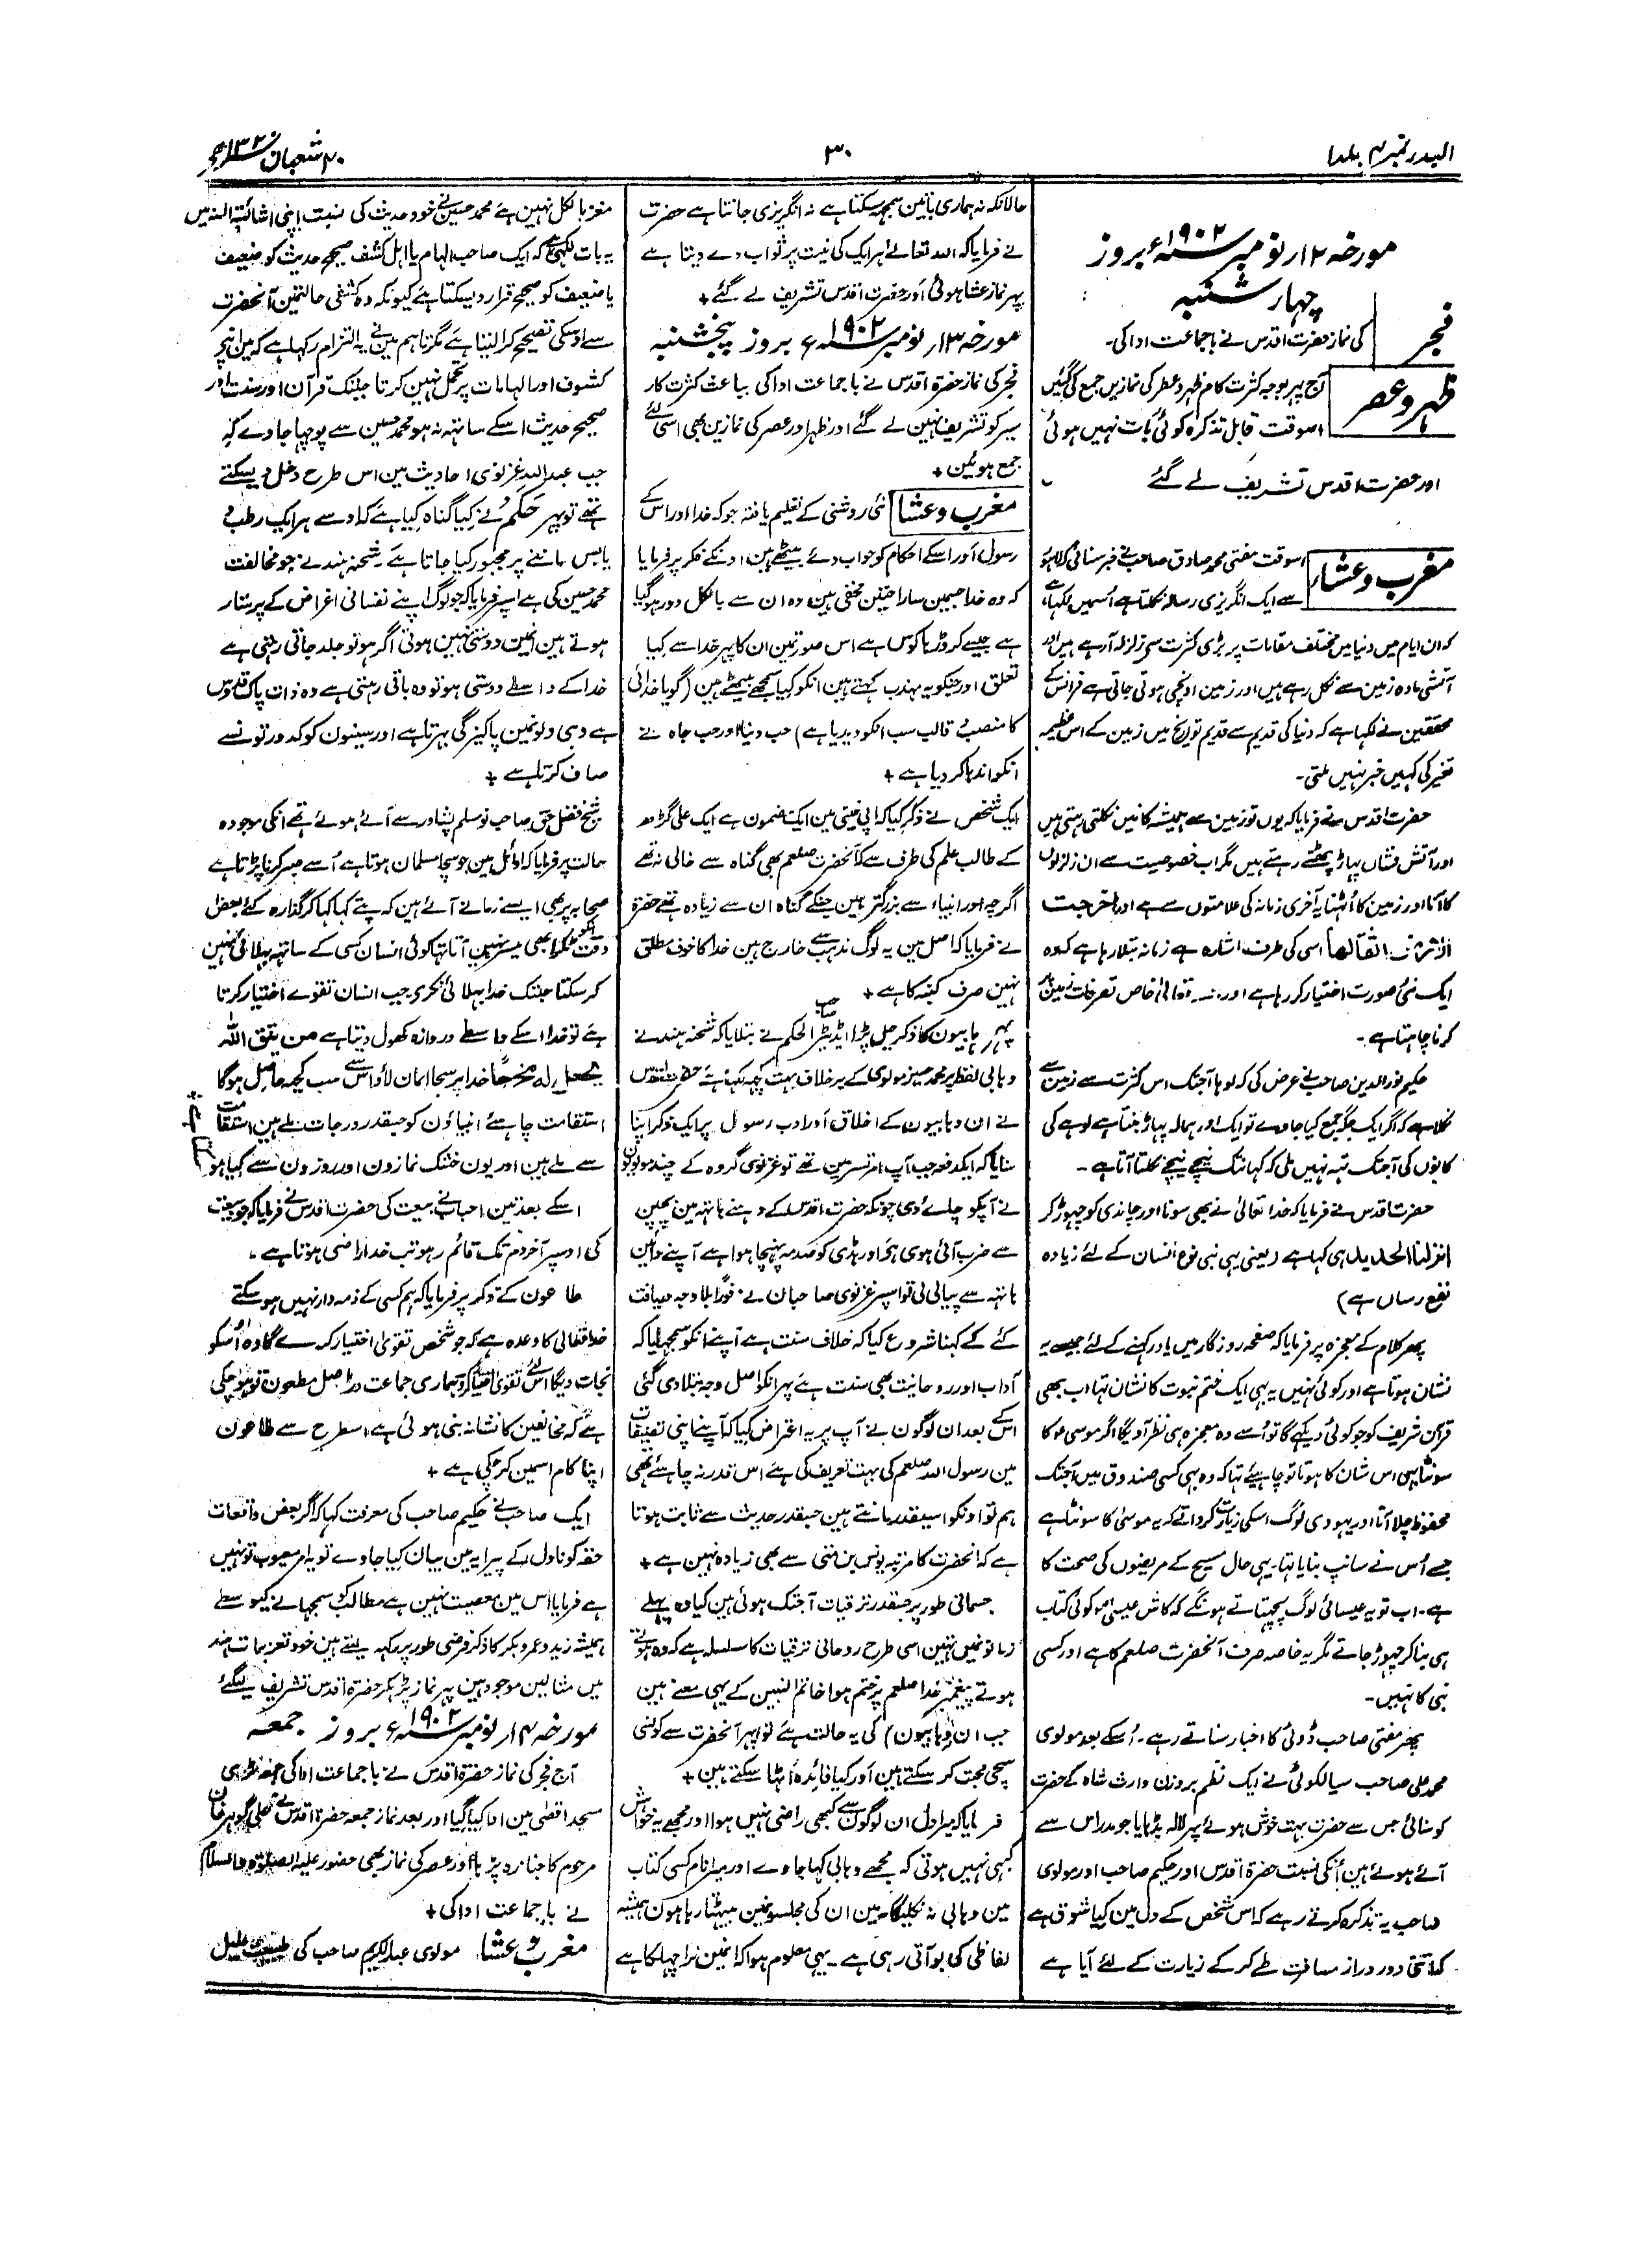 البدر نمبر ۴ جلد ا
۳۰
۲۰ شعبان ۱۳۲۰ھ
مورخہ ۱۲ ار نومبر ۱۹۰۲ سنہ ء بروز
چہار شنبہ
فجر
کی نماز حضرت اقدس نے با جماعت ادا کی۔
ظہر و عصر
آج پہر بوجہ کثرت کام ظہر و عصر کی نمازیں جمع کی گئیں
اسوقت قابل تذکرہ کوئی بات نہیں ہوئی
اور حضرت اقدس تشریف لے گئے
مغرب و عشاء
اسوقت مفتی محمد صادق صاحب نے خبر سنائی کہ لاہو
سے ایک انگریزی رسالہ نکلتا ہے اُسمیں لکھا ہے
کہ ان ایام میں دنیا میں مختلف مقامات پر بڑی کثرت سے زلزلہ آرہے ہیں اور
آتشی مادہ زمین سے نکل رہے ہیں اور زمین اونچی ہوتی جاتی ہے فرانس کے
محققین نے لکہا ہے کہ دنیا کی قدیم سے قدیم تواریخ میں زمین کے اس عظیم
تغیر کی کہیں خبر نہیں ملتی۔
حضرت اقدس نے فرمایا کہ یوں تو زمین سے ہمیشہ کانیں نکلتی رہتی ہیں
اور آتش فشاں پہاڑ پھٹتے رہتے ہیں مگر اب خصوصیت سے ان زلزلوں
کا آنا اور زمین کا اُٹہنا یہ آخری زمانہ کی علامتوں سے ہے اور اخرجت
الارض اثقالہا اسی کی طرف اشارہ ہے زمانہ بتلا رہا ہے کہ وہ
ایک نئی صورت اختیار کر رہا ہے اور تعالیٰ خاص تصرفات زمین پر
کرنا چاہتا ہے۔
حکیم نور الدین صاحب نے عرض کی کہ لوہا آجتک اس کثرت سے زمین سے
نکلا ہے کہ اگر ایک جگہ جمع کیا جاوے تو ایک اور ہمالہ پہاڑ بنتا ہے لوہے کی
کانوں کی آجتک تہہ نہیں ملی کہ کہانتک نیچے نیچے نکلتا آتا ہے۔
حضرت اقدس نے فرمایا کہ خدا تعالیٰ نے بھی سونا اور چاندی کو چہوڑ کر
انزلنا الحدید ہی کہا ہے (یعنی یہی بنی نوع انسان کے لئے زیادہ
نفع رساں ہے)
پھر کلام کے معجزہ پر فرمایا کہ صفحہ روزگار میں یاد رکہنے کے لئے جیسے یہ
نشان ہوتا ہے اور کوئی نہیں یہ بہی ایک ختم نبوت کا نشان تہا اب بھی
قرآن شریف کو جو کوئی دیکہے گا تو اُسے وہ معجزہ ہی نظر آویگا اگر موسیٰ ؑ کا
سونٹا بہی اس شان کا ہوتا تو چاہیئے تہا کہ وہ بہی کسی صندوق میں آجتک
محفوظ چلا آتا اور یہودی لوگ اسکی زیارت کرواتے کہ یہ موسیٰ کا سونٹا ہے
جسے اُس نے سانپ بنایا تہا۔ یہی حال مسیح کے مریضوں کی صحت کا
ہے۔ اب تو یہ عیسائی لوگ پچہتاتے ہونگے کہ کاش عیسیٰ ؑ کوئی کتاب
ہی بنا کر چہوڑ جاتے مگر یہ خاصہ صرف آنحضرت صلعم کا ہے اور کسی
نبی کا نہیں۔
پھر مفتی صاحب ڈوئی کا اخبار سناتے رہے۔ اُسکے بعد مولوی
محمد علی صاحب سیالکوٹی نے ایک نظم بر وزن وارث شاہ کے حضرت
کو سنائی جس سے حضرت بہت خوش ہوئے پہر لالہ پڈہایا جو مدراس سے
آئے ہوئے ہین اُنکی نسبت حضرۃ اقدس اور حکیم صاحب اور مولوی
صاحب یہ تذکرہ کرتے رہے کہ اس شخص کے دل مین کیا شوق ہے
کہ اتنی دور دراز مسافت طے کر کے زیارت کے لئے آیا ہے
حالانکہ نہ ہماری باتین سمجہ سکتا ہے نہ انگریزی جانتا ہے حضرت
نے فرمایا کہ اللہ تعالےٰ ہر ایک کی نیت پر ثواب دے دیتا ہے
پہر نماز عشا ہوئی اور حضرت اقدس تشریف لے گئے +
مورخہ ۱۳ ار نومبر ۱۹۰۲ سنہ ء بروز پنجشنبہ
فجر کی نماز حضرۃ اقدس نے با جماعت ادا کی بباعث کثرت کار
سیر کو تشریف نہین لے گئے اور ظہر اور عصر کی نمازین بھی اسی لئے
جمع ہوئین +
مغرب و عشا
نئی روشنی کے تعلیم یافتہ جو کہ خدا اور اس کے
رسول اور اسکے احکام کو جواب دئے بیٹھے ہین اونکے ذکر پر فرمایا
کہ وہ خدا جسمین سارا حتین مخفی ہین وہ ان سے بالکل دور ہو گیا
ہے جیسے کروڑ ہا کوس ہے اس صورتمین ان کا پہر خدا سے کیا
تعلق اور جنکو یہ مہذب کہتے ہین انکو کیا سمجھے بیٹھے ہین (گویا خدائی
کا منصب قالب سب انکو دیدیا ہے) حب دنیا اور حب جاہ نے
انکو اندہا کر دیا ہے +
ایک شخص نے ذکر کیا کہ اپی فینی مین ایک مضمون ہے ایک علی گڑھ
کے طالب علم کی طرف سے کہ آنحضرت صلعم بھی گناہ سے خالی نہ تھے
اگرچہ اور انبیاء سے بزرگتر ہین جنکے گناہ ان سے زیادہ تھے حضرۃ
نے فرمایا کہ اصل مین یہ لوگ مذہب سے خارج ہین خدا کا خوف مطلق
نہین صرف کنبہ کا ہے +
پہر وہابیون کا ذکر چل پڑا ایڈیٹر صاحب الحکم نے بتلایا کہ شحنہ ہند نے
وہابی لفظ پر محمد حسین مولوی کے برخلاف بہت کچہ لکہا ہے حضرت اقدس
نے ان وہابیون کے اخلاق اور ادب رسول پر ایک ذکر اپنا
سنایا کہ ایکدفعہ جب آپ امرتسر مین تھے تو غزنوی گروہ کے چند مولویون
نے آپکو چاے دی چونکہ حضرت اقدس کے دہنے ہاتہہ مین بچپن
سے ضرب آئی ہوی ہے اور ہڈی کو صدمہ پہنچا ہوا ہے آپنے بائین
ہاتہہ سے پیالی لی تو اسپر غزنوی صاحبان نے فوراً بلا وجہ دریافت
کئے کے کہنا شروع کیا کہ خلاف سنت ہے آپنے انکو سمجہایا کہ
آداب اور روحانیت بھی سنت ہے پہر انکو اصل وجہ بتلا دی گئی
اسکے بعد ان لوگون نے آپ پر یہ اعتراض کیا کہ آپنے اپنی تصنیفات
مین رسول اللہ صلعم کی بہت تعریف کی ہے اس قدر نہ چاہئے تھی
ہم تو اونکو اسیقدر مانتے ہین جسقدر حدیث سے ثابت ہوتا
ہے کہ آنحضرت کا مرتبہ یونس بن متی سے بھی زیادہ نہین ہے +
جسمانی طور پر جسقدر ترقیات آجتک ہوئی ہین کیا وہ پہلے
زمانونمیں تہین اسی طرح روحانی ترقیات کا سلسلہ ہے کہ وہ ہوتے
ہوتے پیغمبر خدا صلعم پر ختم ہوا خاتم النبین کے یہی معنے ہین
جب ان (وہابیون) کی یہ حالت ہے تو پہر آنحضرت سے کونسی
سچی محبت کر سکتے ہین اور کیا فائدہ اُٹہا سکتے ہین +
فرمایا کہ میرا دل ان لوگون سے کبھی راضی نہیں ہوا اور مجھے یہ خواہش
کبہی نہیں ہوتی کہ مجھے وہابی کہا جاوے اور میرا نام کسی کتاب
مین وہابی نہ نکلیگا۔ مین ان کی مجلسونمین بیٹہتا رہا ہون ہمیشہ
لفاظی کی بو آتی رہی ہے۔ یہی معلوم ہوا کہ انمین نرا چہلکا ہے
مغز بالکل نہین ہے محمد حسین نے خود حدیث کی نسبت اپنی اشاعۃ السنہ میں
یہ بات لکہی ہے کہ ایک صاحب الہام یا اہل کشف صحیح حدیث کو ضعیف
یا ضعیف کو صحیح قرار دیسکتا ہے کیونکہ وہ کشفی حالتمین آنحضرت
سے اوسکی تصحیح کرا لیتا ہے مگر تاہم مین نے یہ التزام رکہا ہے کہ مین اپنے
کشوف اور الہامات پر عمل نہین کرتا جبتک قرآن اور سنت اور
صحیح حدیث اسکے ساتہہ نہ ہو محمد حسین سے پوچہا جاوے کہ
جب عبد اللہ غزنوی احادیث مین اس طرح دخل دیسکتے
تھے تو پہر حَکَم نے کیا گناہ کیا ہے کہ اوسے ہر ایک رطب و
یابس ماننے پر مجبور کیا جاتا ہے۔ شحنہ ہند نے جو مخالفت
محمد حسین کی ہے اسپر فرمایا کہ جو لوگ اپنے نفسانی اغراض کے پرستار
ہوتے ہین انمین دوستی نہین ہوتی اگر ہو تو جلد جاتی رہتی ہے
خدا کے واسطے دوستی ہو تو وہ باقی رہتی ہے وہ ذات پاک قدوس
ہے وہی دلونمین پاکیزگی بہرتا ہے اور سینون کو کدورتونسے
صاف کرتا ہے +
شیخ فضل حق صاحب نو مسلم پشاور سے آئے ہوئے تھے انکی موجودہ
حالت پر فرمایا کہ اوائل مین جو سچا مسلمان ہوتا ہے اُسے صبر کرنا پڑتا ہے
صحابہ پر بھی ایسے زمانے آئے ہین کہ پتے کہا کہا کر گذارہ کئے بعض
وقت انکو ٹکڑا بھی میسر نہین آتا تہا کوئی انسان کسی کے ساتہہ بہلائی نہین
کر سکتا جبتک خدا بہلائی نکرے جب انسان تقوے اختیار کرتا
ہے تو خدا اسکے واسطے دروازہ کھول دیتا ہے من یتق اللہ
یجعل لہ مخرجاً خدا پر سچا ایمان لاؤ اس سے سب کچہ حاصل ہوگا
استقامت چاہئے انبیاؤن کو جسقدر درجات ملے ہین استقامت
سے ملے ہین اور یون خشک نمازون اور روزون سے کیا ہو
سکتا ہے +
اسکے بعد تین احباب نے بیعت کی حضرت اقدس نے فرمایا کہ جو بیعت
کی اوسپر آخر دم تک قائم رہو تب خدا راضی ہوتا ہے۔
طاعون کے ذکر پر فرمایا کہ ہم کسی کے ذمہ دار نہیں ہو سکتے
خدا تعالیٰ کا وعدہ ہے کہ جو شخص تقویٰ اختیار کرے گا وہ اُسکو
نجات دیگا اس لئے تقویٰ اختیار کرو ہماری جماعت دراصل مطعون تو ہو چکی
ہے کہ مخالفین کا نشانہ بنی ہوئی ہے اسطرح سے طاعون
اپنا کام اسمین کر چکی ہے +
ایک صاحب نے حکیم صاحب کی معرفت کہا کہ اگر بعض واقعات
حقہ کو ناول کے پیرایہ مین بیان کیا جاوے تو یہ امر معیوب تو نہیں
ہے فرمایا اس مین معصیت نہین ہے مطالب کو سمجہانے کیواسطے
ہمیشہ زید و عمرو بکر کا ذکر فرضی طور پر کہہ لیتے ہین خود تعزیرات ہند
میں مثالین موجود ہین پہر نماز پڑہکر حضرۃ اقدس تشریف لیگئے
مورخہ ۱۴ ار نومبر ۱۹۰۲ سنہ ء بروز جمعہ
آج فجر کی نماز حضرۃ اقدس نے با جماعت ادا کی
مسجد اقصیٰ مین ادا کیا گیا اور بعد نماز جمعہ حضرۃ اقدس نے علی گوہر خان
مرحوم کا جنازہ پڑہا اور عصر کی نماز بھی حضور علیہ الصلوٰۃ والسلام
نے با جماعت ادا کی +
مغرب و عشا مولوی عبد الکریم صاحب کی طبیعت علیل